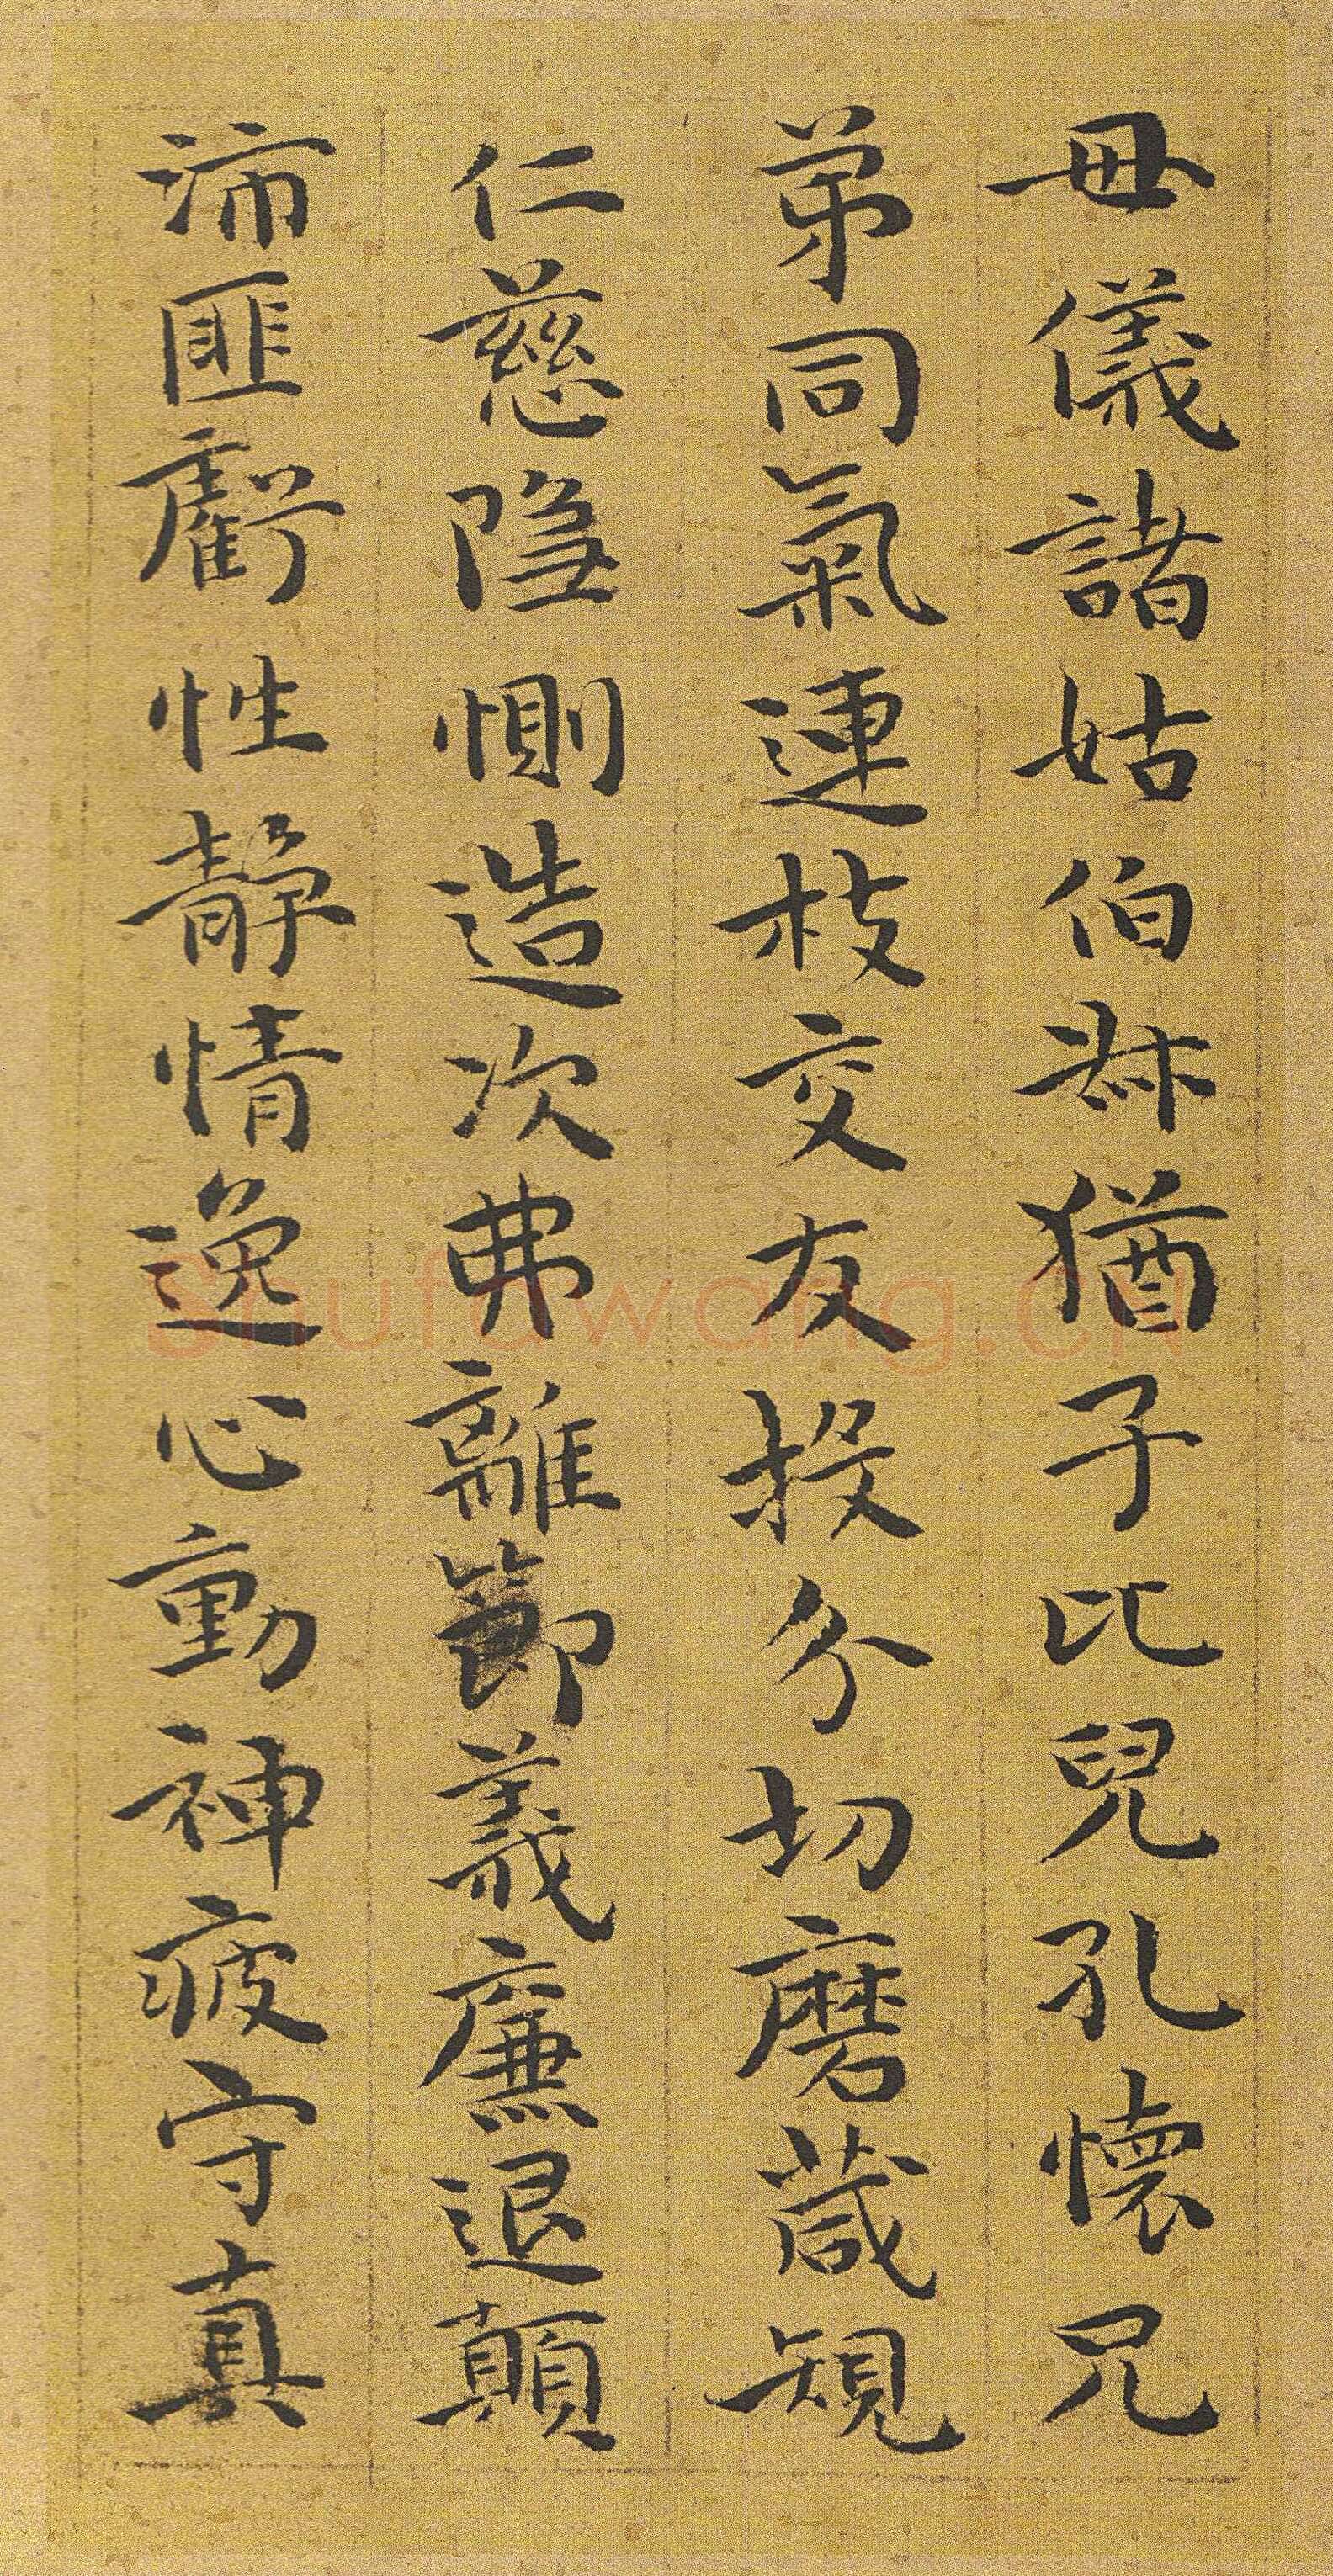 母儀諸姑伯叔猶子比兒孔懷兄
弟同氣連枝交友投分切磨箴規
仁慈隐惻造次弗離節義廉退顛
沛匪虧性靜情逸心動神疲守真
shufawang.cn